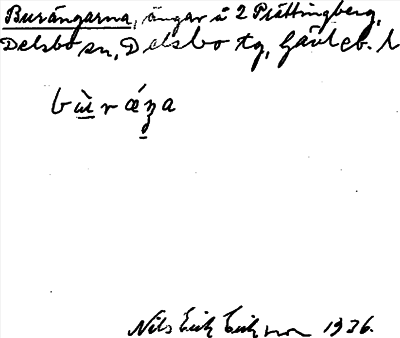 Burängarna, ängar å 2 Prästingberg,
Delsbo sn, Delsbo tg, Gävleb. l
bùrǽŋa
Nils Erik Eriksson 1936.